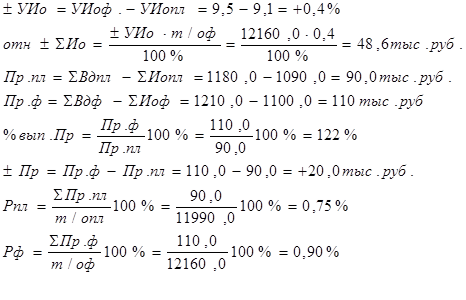 ± УИо = УИоф . − УИопл = 9,5 − 9,1 = +0,4 %
отн ± ΣИо = ± УИо · т / оф / 100 % = 12160 ,0 · 0,4 / 100 % = 48 ,6 тыс . руб .
Пр .пл = ΣВдпл − ΣИопл = 1180 ,0 − 1090 ,0 = 90,0 тыс .руб .
Пр .ф = ΣВдф − ΣИоф = 1210 ,0 − 1100 ,0 = 110 тыс .руб
% вып .Пр = Пр .ф / Пр .пл 100 % = 110 ,0 / 90,0 100 % = 122 %
± Пр = Пр .ф − Пр .пл = 110 ,0 − 90,0 = +20 ,0 тыс .руб .
Рпл = ΣПр .пл / т / опл 100 % = 90,0 / 11990 ,0 100 % = 0,75 %
Рф = ΣПр .ф / т / оф 100 % = 110 ,0 / 12160 ,0 100 % = 0,90 %